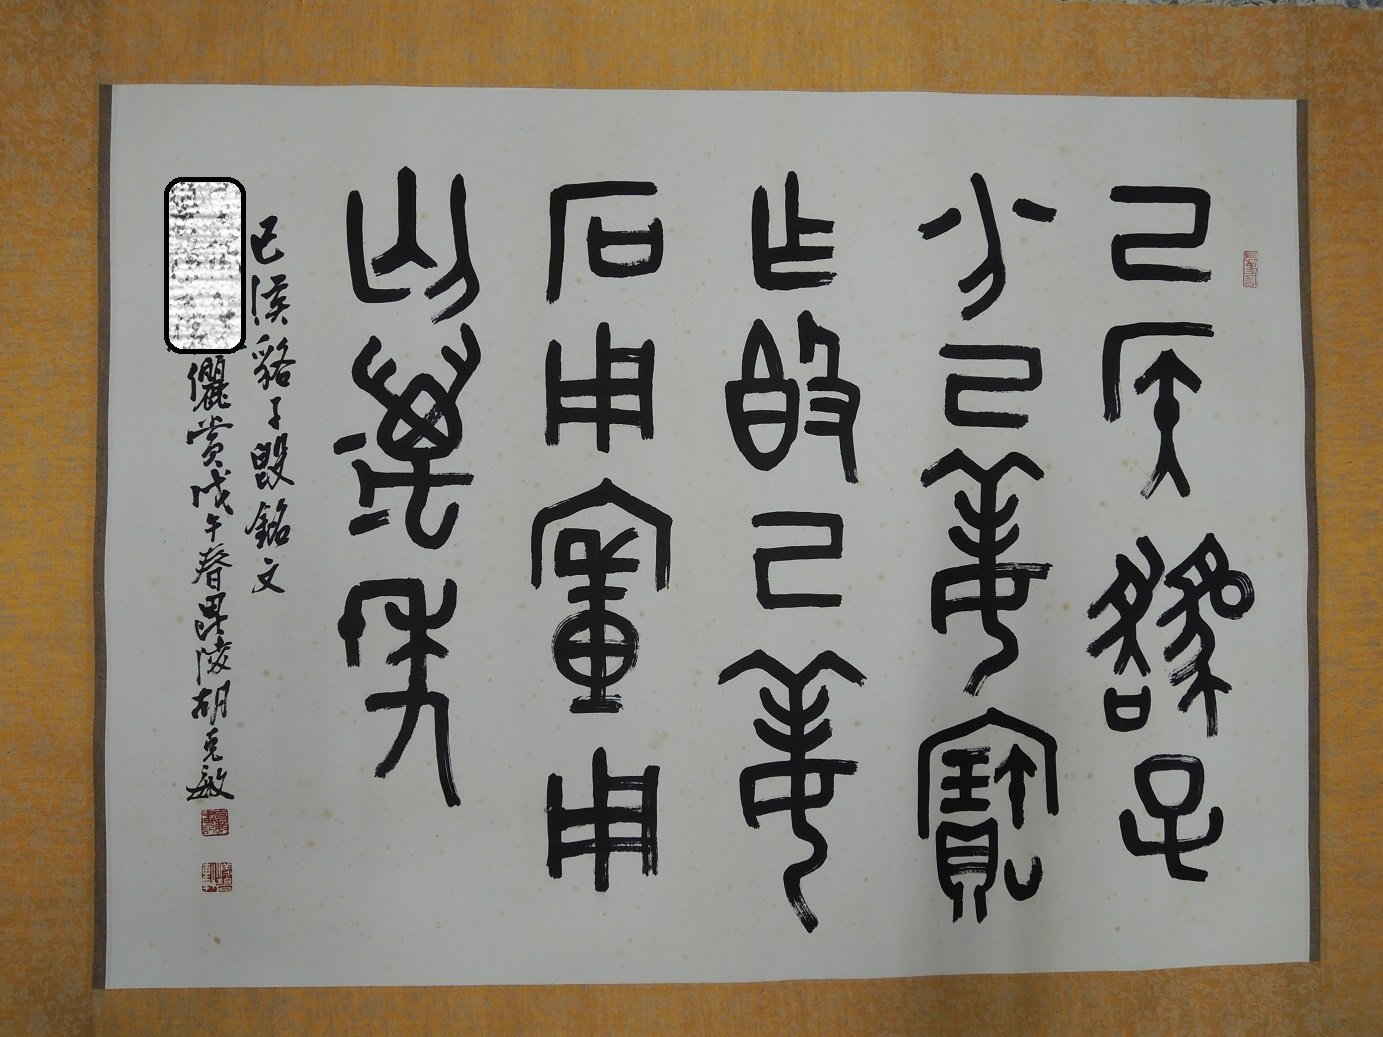 己侯貉子
分己姜寶
乍𣪘己姜
石用用
匄萬年
己侯貉子𣪘銘文
儷賞戊午春毘陵胡克敏